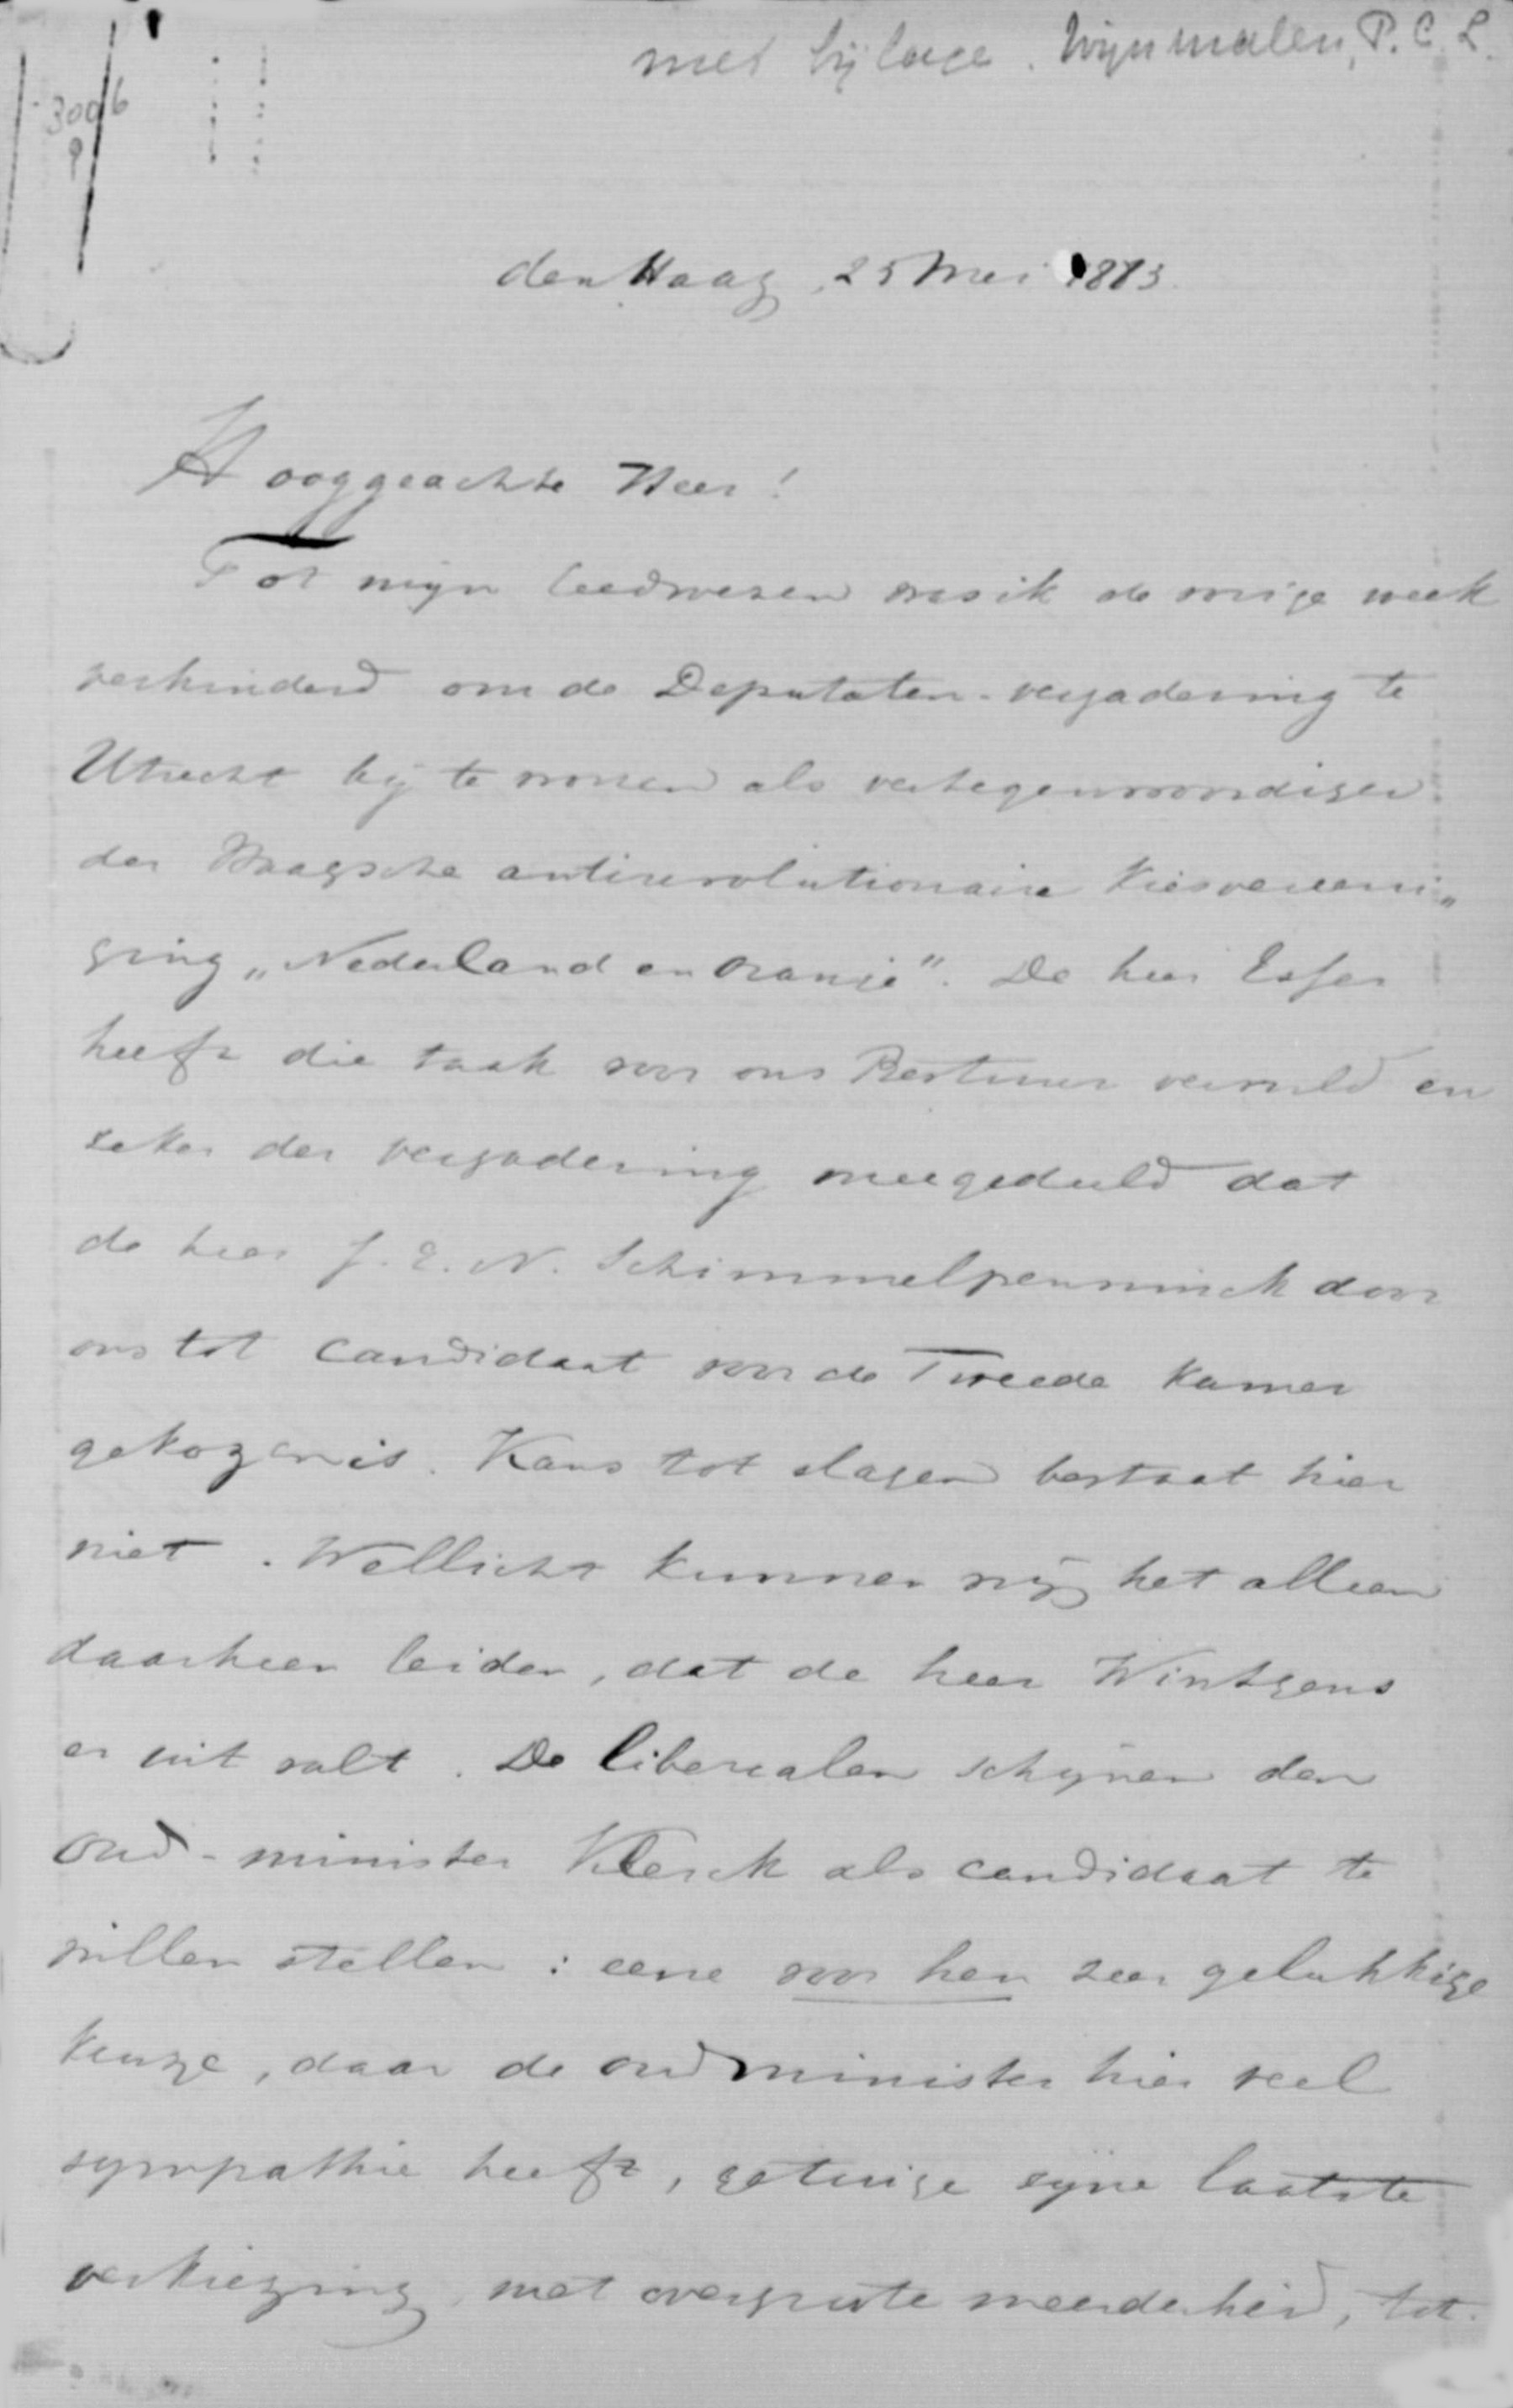 met bijlage. Wijnmalen, P.C.L.
3006
den Haag, 25 Mei 1873.
Hooggeachte Heer!
Tot mijn leedwezen was ik de vorige week
verhinderd om de Deputaten-vergadering te
Utrecht bij te wonen als vertegenwoordiger
der Haagsche antirevolutionaire Kiesvereeni„
ging „Nederland en Oranje". De heer Esser
heeft die taak voor ons Bestuur vervuld en
zeker der vergadering meegedeeld dat
de heer J.E.N. Schimmelpenninck door
ons tot candidaat voor de Tweede Kamer
gekozen is. Kans tot slagen bestaat hier
niet. Wellicht kunnen wij het alleen
daarheen leiden, dat de heer Wintgens
er uit valt. De liberalen schijnen den
oud-minister Klerck als candidaat te
willen stellen: eene voor hen zeer gelukkige
keuze, daar de oudminister hier veel
sympathie heeft, getuige zijne laatste
verkiezing, met overgroote meerderheid, tot